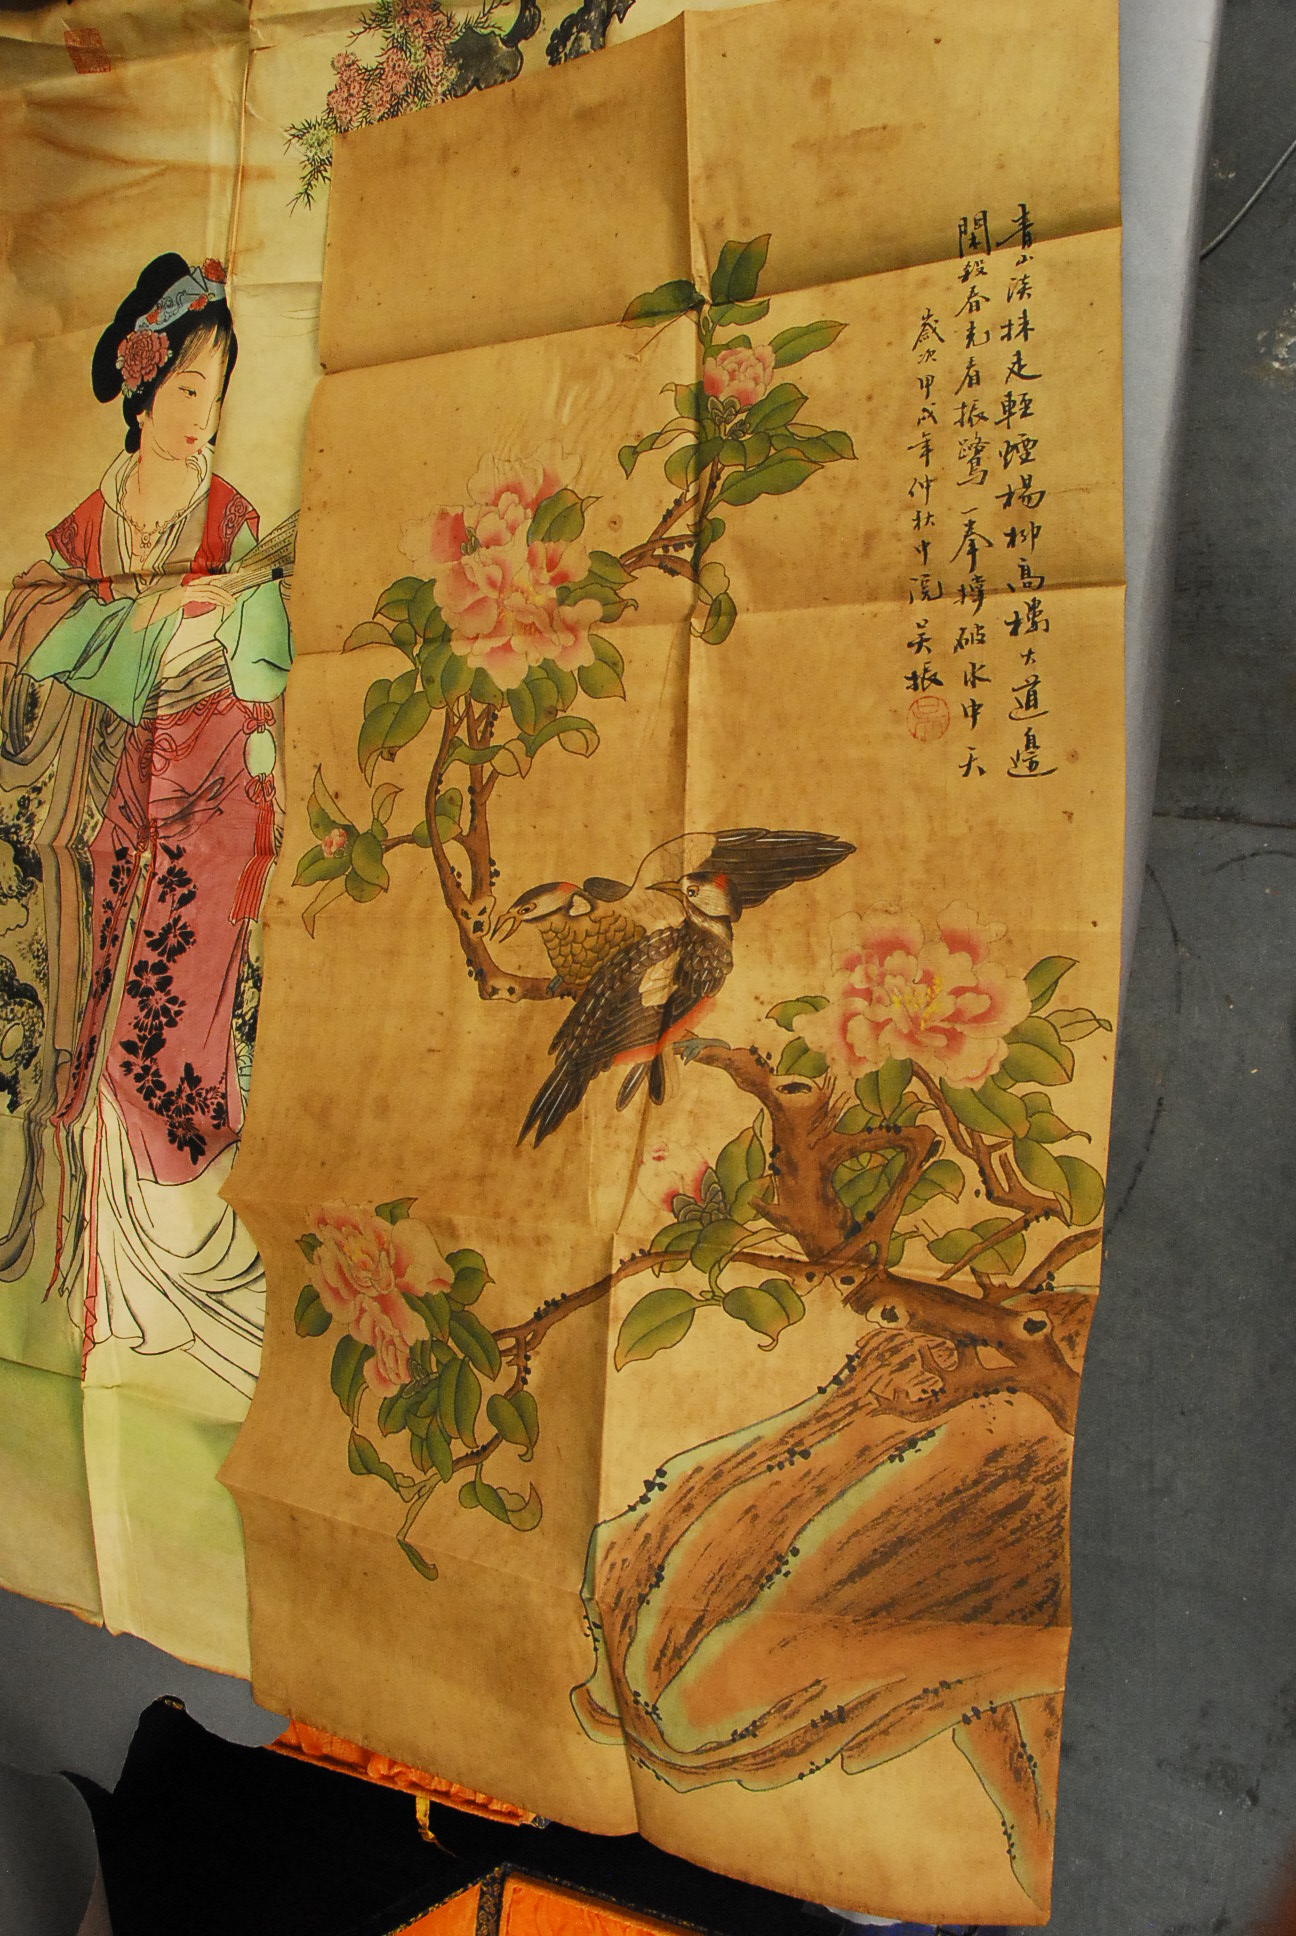 青山淡抹走輕煙楊柳高樓大道邊
閑殺春光看振鷺一拳撑破水中天
歲次甲戌年仲秋中浣吴振